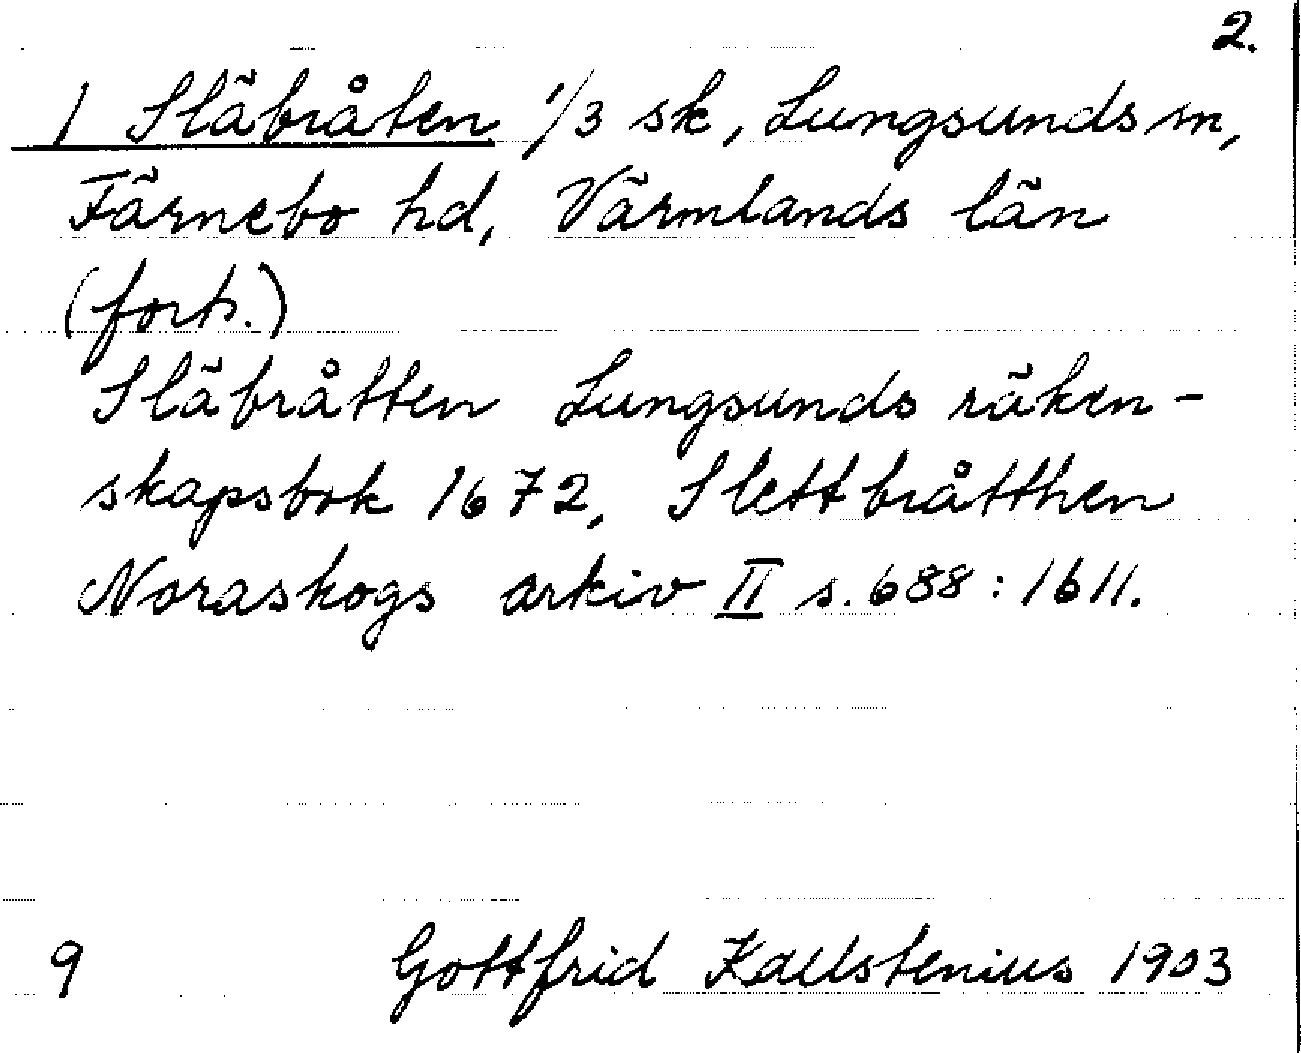 2.
1 Släbråten 1/3 sk, Lungsunds sn,
Färnebo hd, Värmlands län
(forts.)
Släbråtten Lungsunds räken-
skapsbok 1672, Slettbråtthen
Noraskogs arkiv II s. 688: 1611.
9 Gottfrid Kallstenius 1903